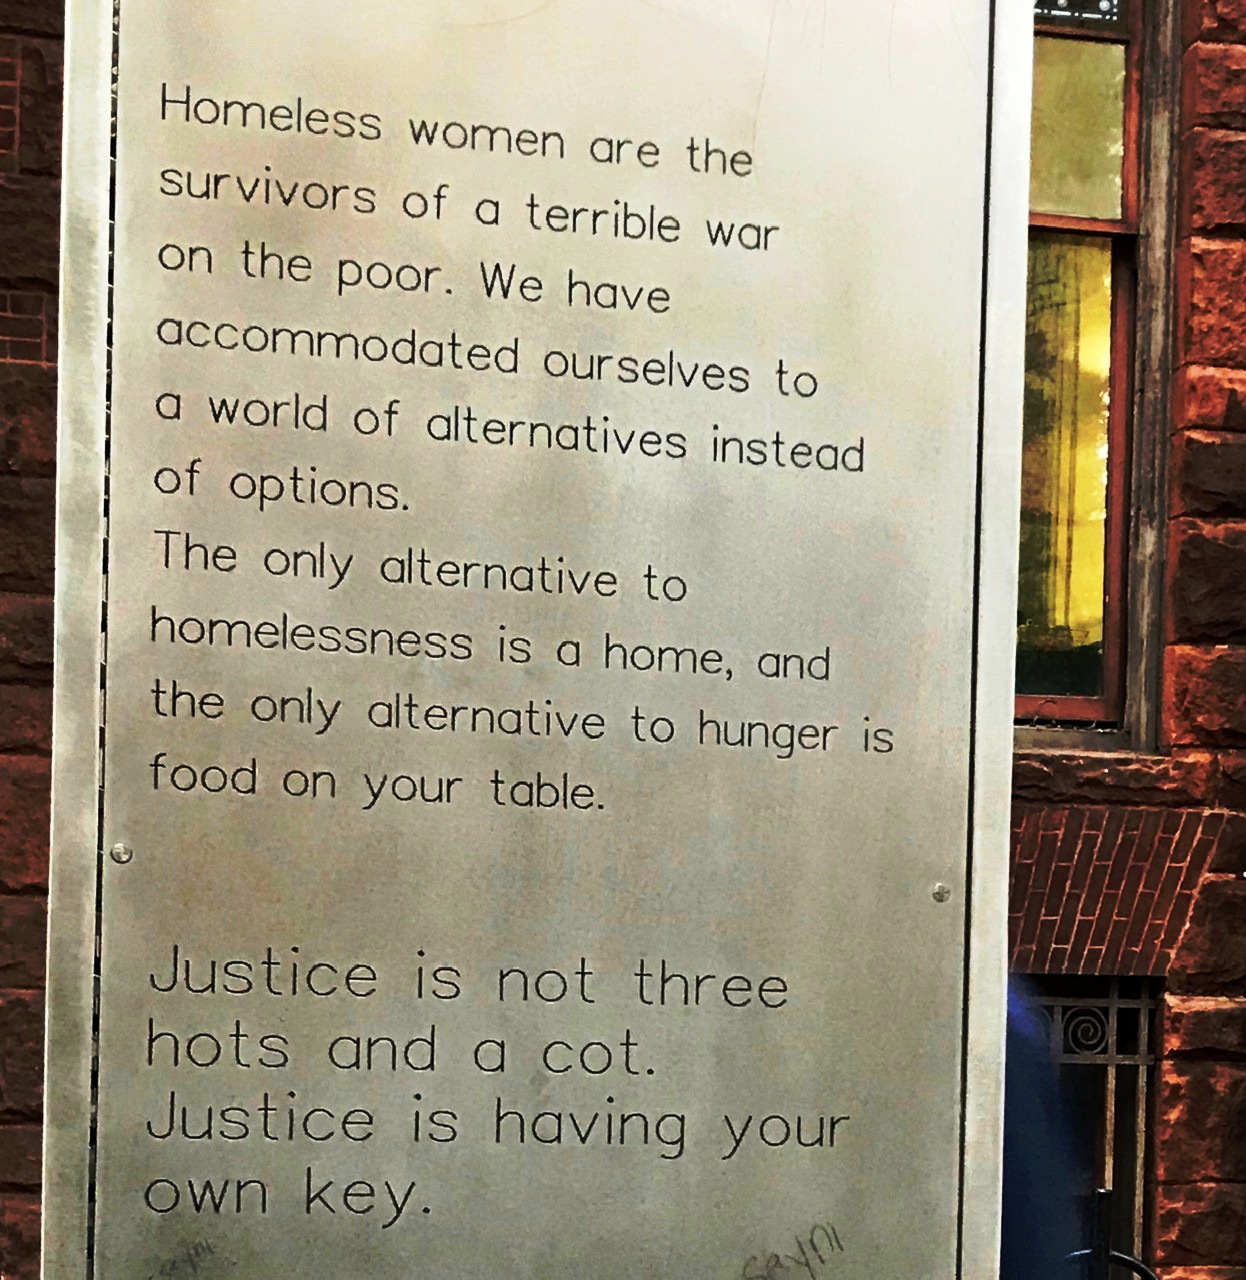 Homeless women are the
survivors of a terrible war
on the poor. We have
accommodated ourselves to
a world of alternatives instead
of options.
The only alternative to
homelessness is a home, and
the only alternative to hunger is
food on your table.
Justice is not three
hots and a cot.
Justice is having your
own key.